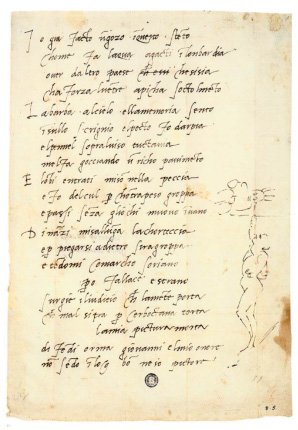 I o gia facto ngozo i questo steto
chome fa lacqua agacti i lombardia
over daltro paese che essi chesisia
cha forza luetre apicha sottolmeto
L abarba alcielo ellamemoria sento
isullo scrignio elpecto fo darpia
elpennel sopraluiso tuctauia
melfa gocciando u richo pauimeto
E lobi entrati miso nella peccia
e fo delcul p chotrapeso groppa
e passi seza gliochi muouo inuano
D inazi misallunga lachorteccia
e p piegarsi adietro siragroppa
e tedomi comarcho soriano
po fallace e strano
surgie iliuditio che lamete porta
che mal si tra p cerboctana torta
lamia pictura morta
di fedi orma giouanni elmio onore
no sedo i log bo ne io pictore